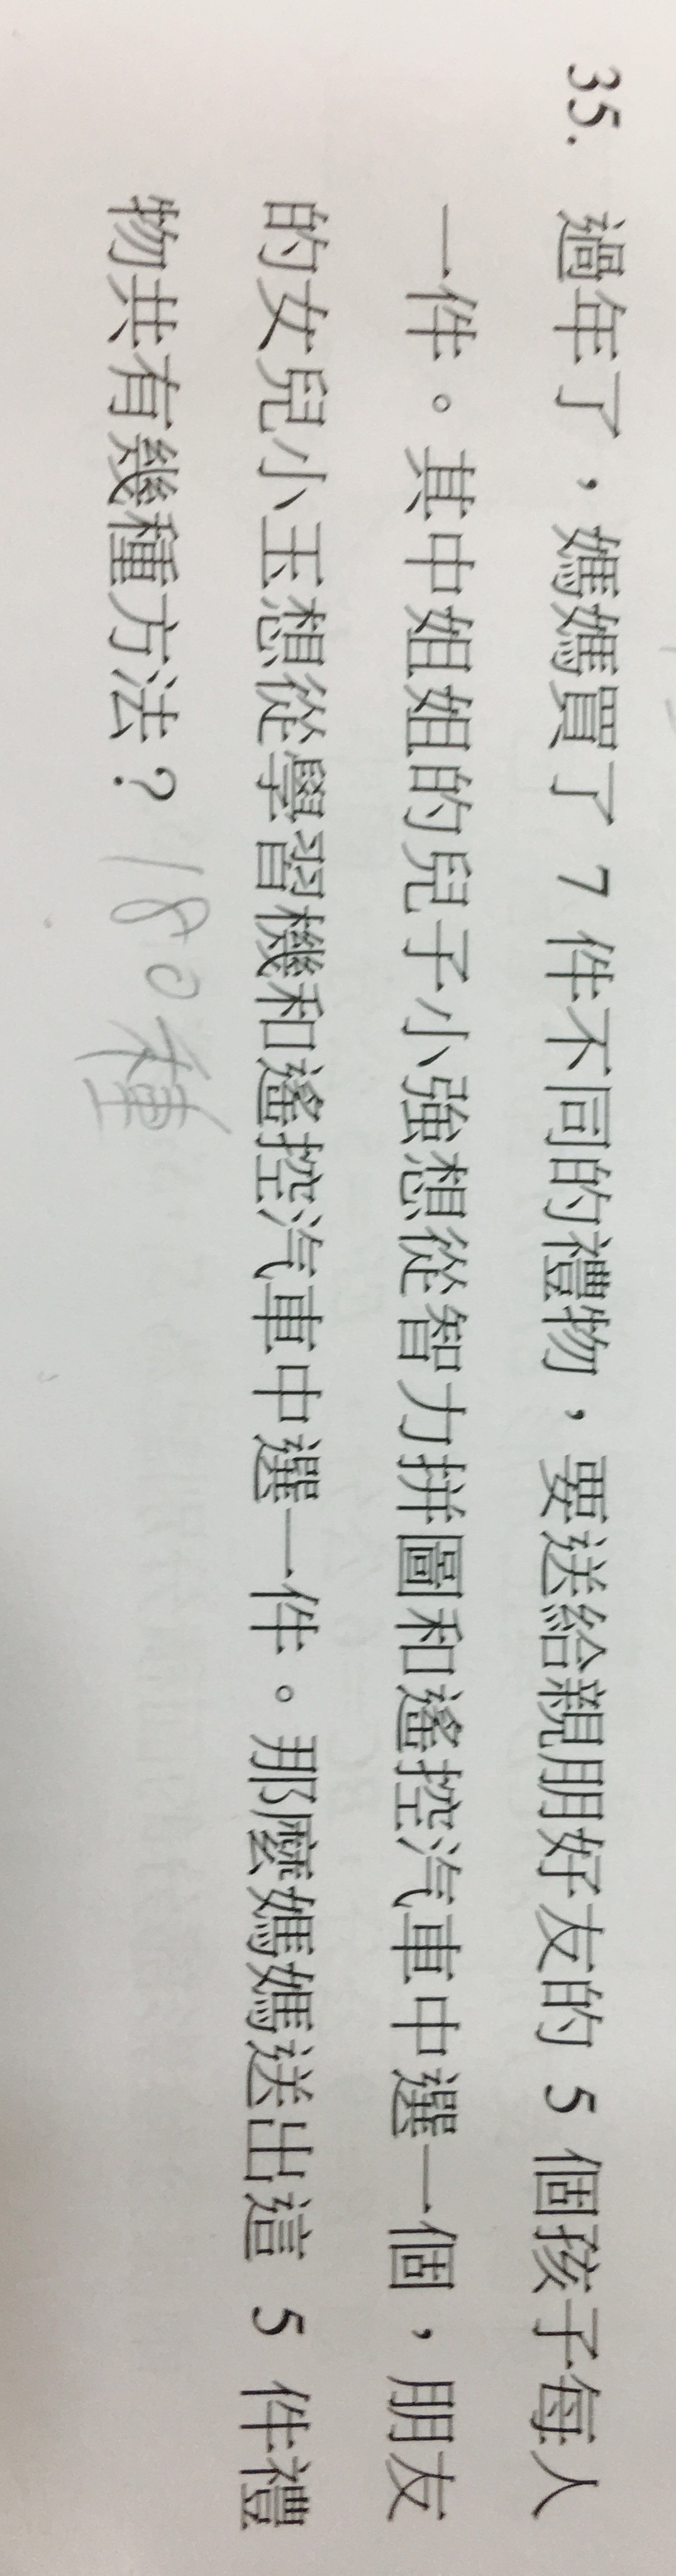 35. 過年了，媽媽買了 7 件不同的禮物，要送給親朋好友的 5 個孩子每人
一件。其中姐姐的兒子小強想從智力拼圖和遙控汽車中選一個，朋友
的女兒小玉想從學習機和遙控汽車中選一件。那麼媽媽送出這 5 件禮
物共有幾種方法？180種